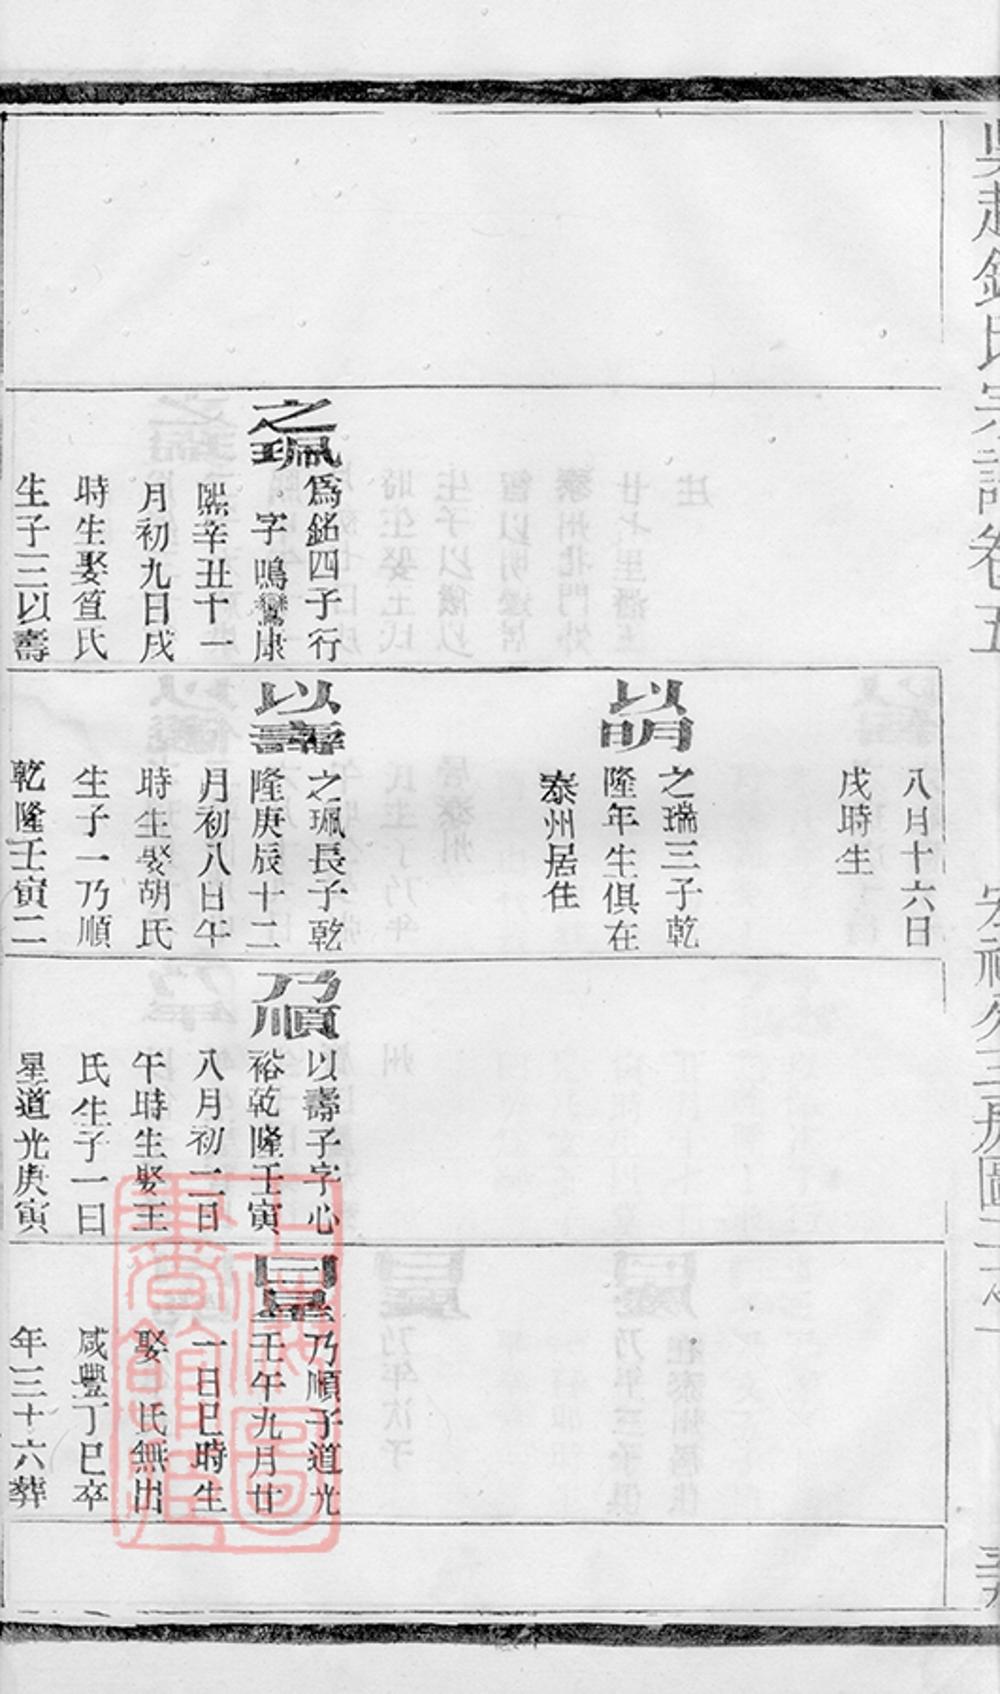 吳越錢氏宗譜卷五
之珮
爲銘四子行
字鳴鸞康
熙辛丑十一
月初九日戌
時生娶笪氏
生子三以壽
八月十六日
戌時生
以明
之瑞三子乾
隆年生俱在
泰州居住
以壽
之珮長子乾
隆庚辰十二
月初八日午
時生娶胡氏
生子一乃順
乾隆壬寅二
乃順
以壽子字心
裕乾隆壬寅
八月初二日
午時生娶王
氏生子一曰
星道光庚寅
曰星
乃順子道光
壬午九月廿
一日巳時生
娶　氏無出
咸豐丁巳卒
年三十六葬